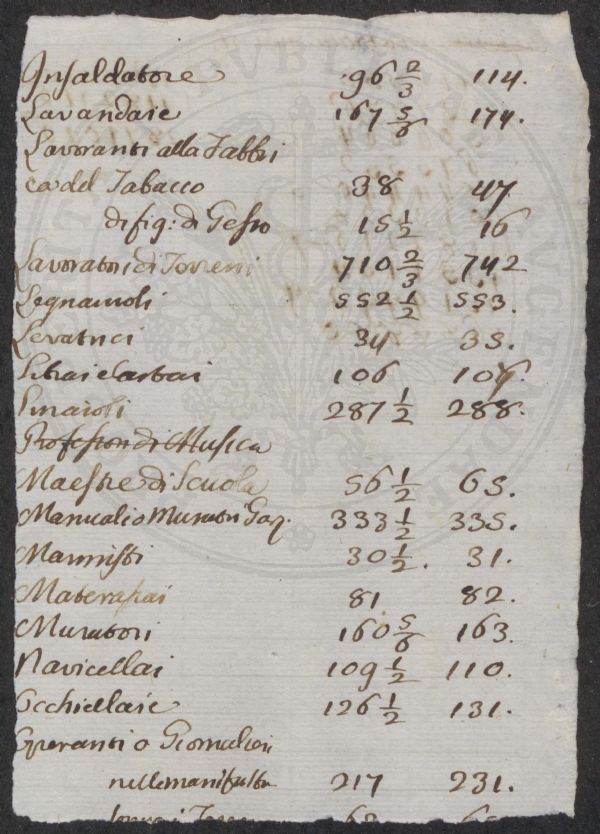 Insaldatore 96 2/3 114.
Lavandaie 167 5/6 174.
Lavoranti alla Fabbri
ca del Tabacco 38 47
di fig: di Gesso 15 1/2 16
Lavoratori di Torreni 710 2/3 742
Legnaiuoli 552 1/2 553.
Levatrici 34 35.
Librai e Cartai 106 107.
Linaioli 287 1/2 288.
Professori di Musica
Maestre di Scuola 56 1/2 65.
Manuali o Muratori 333 1/2 335.
Marmisti 30 1/2. 31.
Materassai 81 82.
Muratori 160 5/6 163.
Navicellai 109 1/2 110.
Occhiellaie 126 1/2 131.
Operanti o Giornalieri
nelle manifatture 217 231.